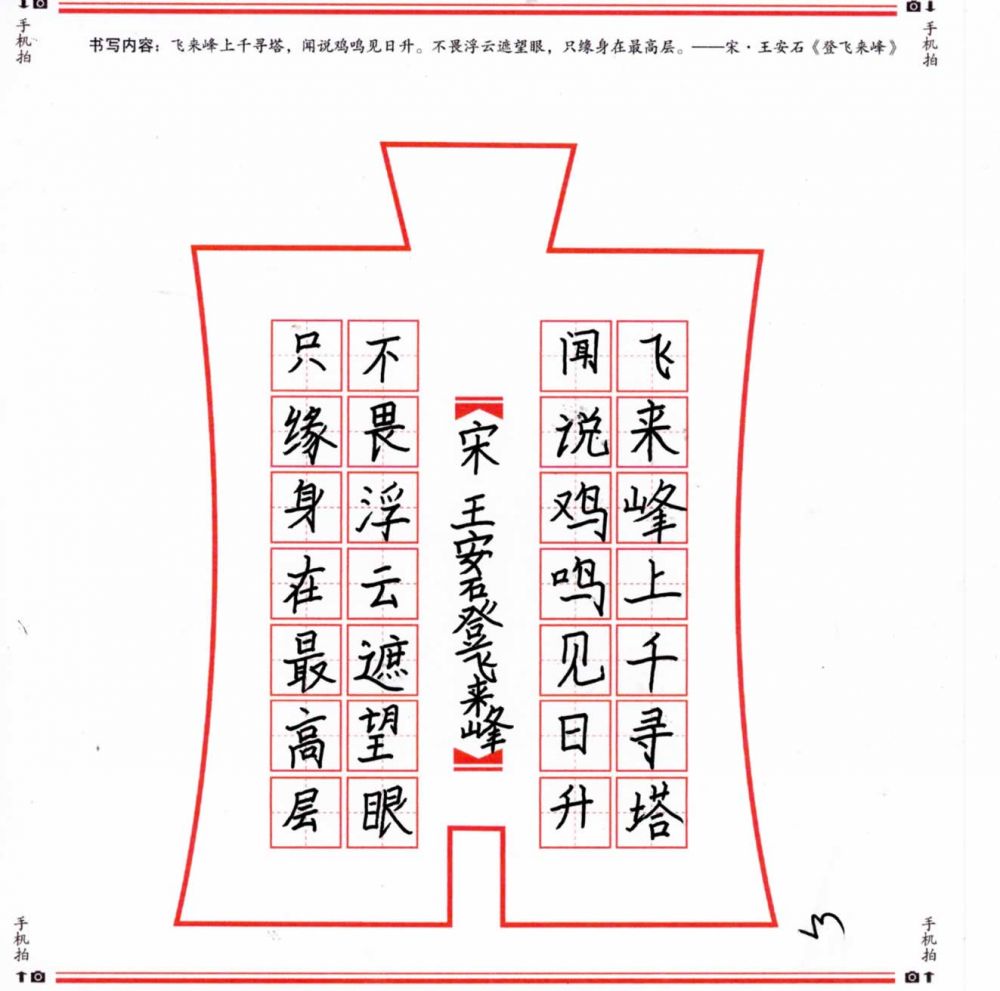 手机拍
手机拍
书写内容：飞来峰上千寻塔，闻说鸡鸣见日升。不畏浮云遮望眼，只缘身在最高层。——宋·王安石《登飞来峰》
飞来峰上千寻塔
闻说鸡鸣见日升
宋 王安石登飞来峰
不畏浮云遮望眼
只缘身在最高层
手机拍
手机拍